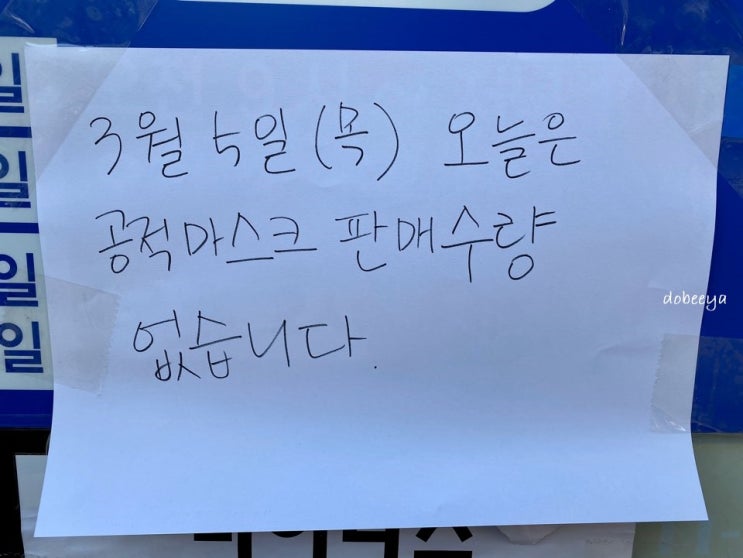 3월 5일 (목) 오늘은
공적마스크 판매수량
없습니다.
dobeeya
일
일
일
일